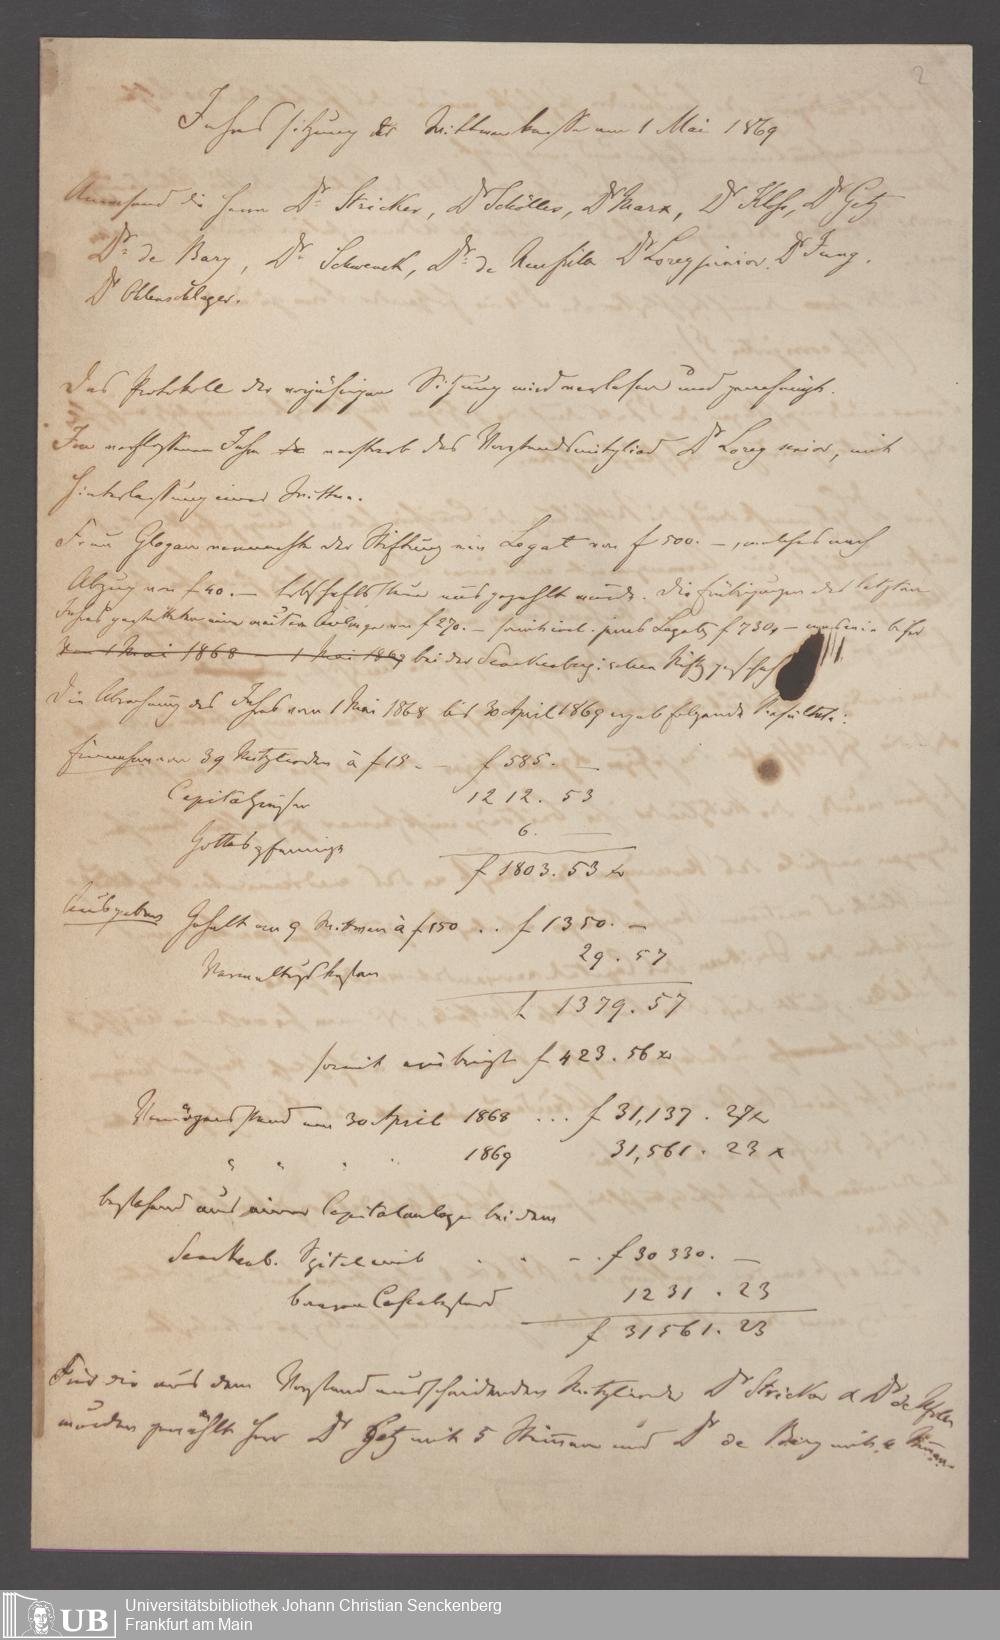 2
Jahressitzung der Wittwenkasse am 1 Mai 1869
Anwesend die Herrn Dr. Stricker, Dr Schölles, Dr Marx, Dr Kloß, Dr Getz
Dr. de Bary, Dr. Schwenck, Dr. de Neufville Dr Lorey junior. Dr Jung.
Dr Ohlenschlager.
Das Protokoll der vorjährigen Sitzung wird verlesen und genehmigt.
Im verflossenen Jahre verstarb das Vorstandsmitglied Dr Lorey senior, mit
Hinterlassung einer Wittwe.
Frau Glogau vermachte der Stiftung ein Legat von f 500. –, welches nach
Abzug von f 40. – Erbschaftssteuer ausgezahlt wurde. Die Erübrigungen des letzten
Jahres gestatteten eine weitere Anlage von f 270. – somit incl. jenes Legats f 730. –
vom 1 Mai 1868 – 1 Mai 1869 bei der Senckenbergischen Stiftg geschah
Die Abrechnung des Jahres vom 1 Mai 1868 bis 30 April 1869 ergab folgende Resultate:
Einnahmen von 39 Mitgliedern à f 15. – f 585. –
Capitalzinsen 1212. 53
Gottespfennige 6. –
f 1803. 53 x
Ausgaben Gehalt an 9 Wittwen à f 150 .. f 1350. –
Verwaltungskosten 29. 57
f 1379. 57
somit erübrigt f 423. 56 x
Vermögensstand am 30 April 1868 ... f 31,137. 27 x
" " " " 1869 31,561. 23 x
bestehend aus einer Capitalanlage bei dem
Senckenb. Stiftg mit . . – . f 30330. –
baarem Cassabestand 1231. 23
f 31561. 23
Für die aus dem Vorstand ausscheidenden Mitglieder Dr Stricker & Dr de Nfville
wurden gewählt Herr Dr Getz mit 5 Stimmen und Dr de Bary mit 4 Stimmen.
UB
Universitätsbibliothek Johann Christian Senckenberg
Frankfurt am Main